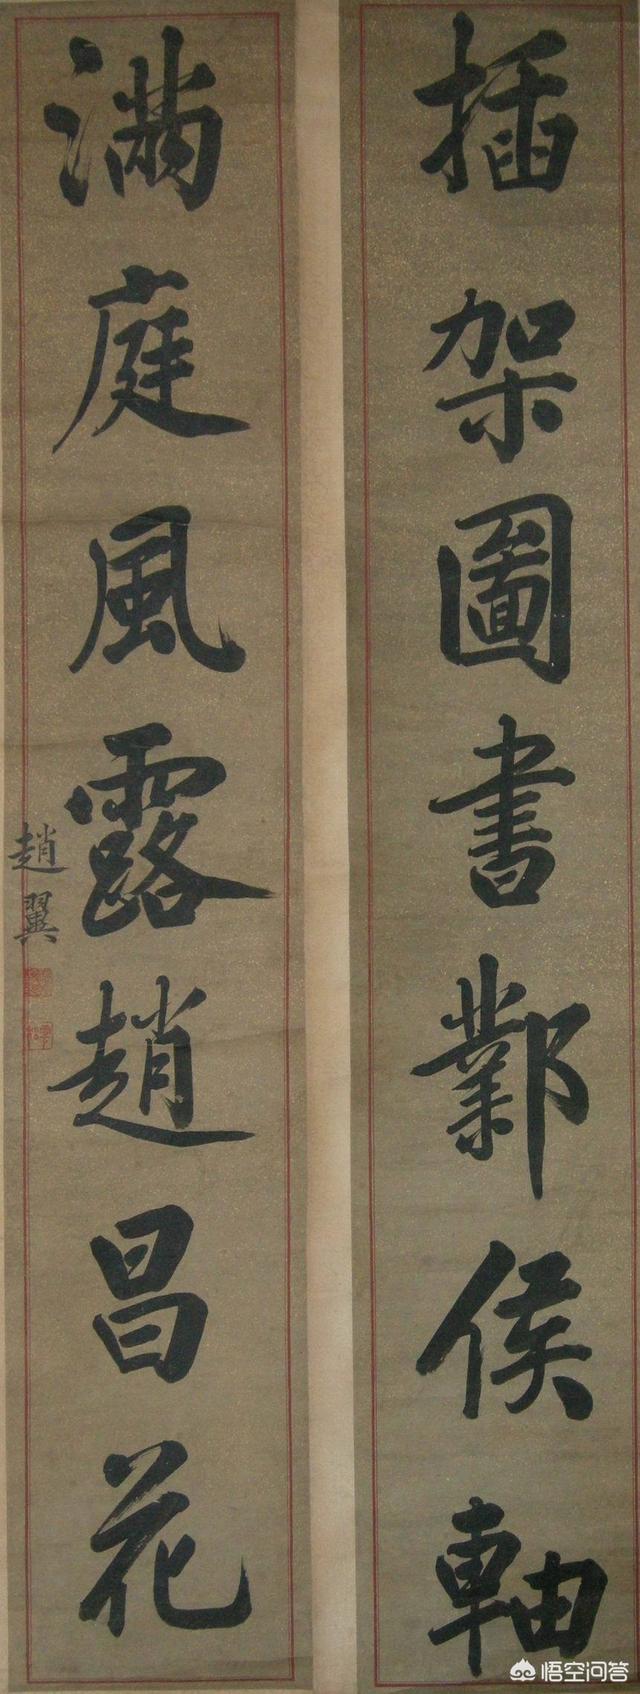 插架圖書鄴侯軸
滿庭風露趙昌花
趙翼
悟空问答